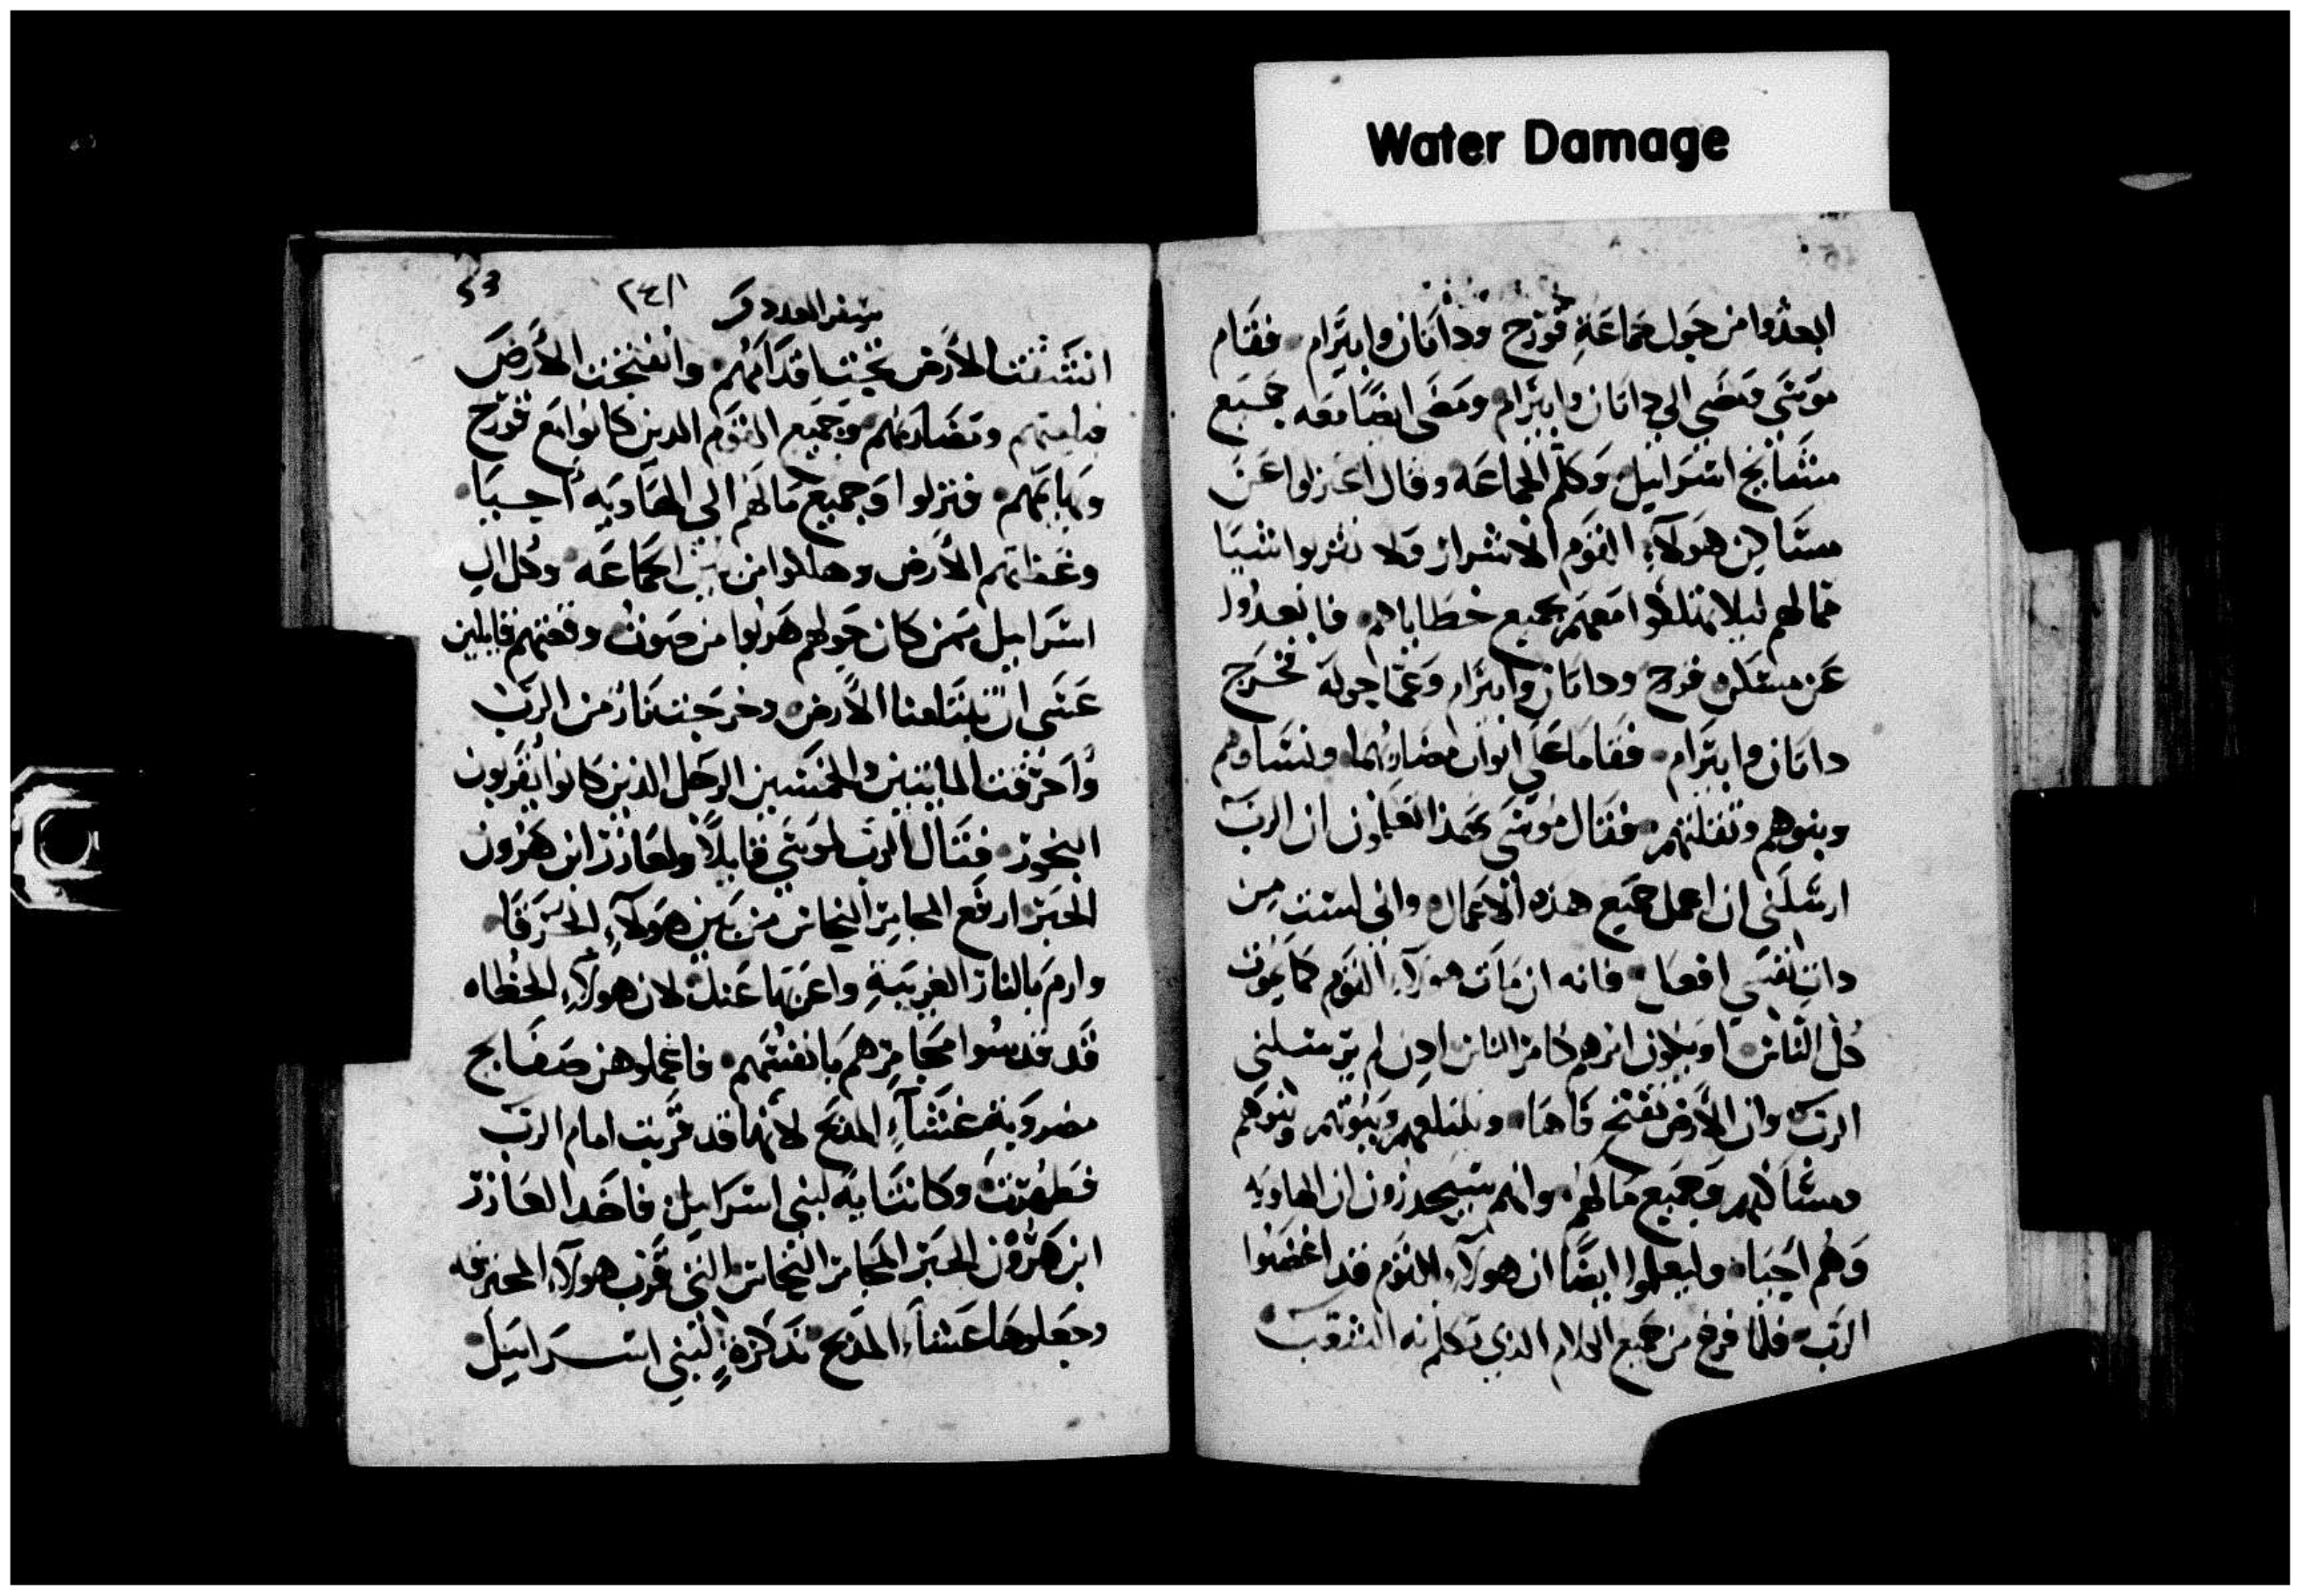 Water Damage
ابعدوا من حول جماعة قورح وداتان وابيرام فقام
موسى ومضى الي داتان وابيرام ومضى ايضا معه جميع
مشايخ اسرائيل وكلم الجماعه وقال اعتزلوا عن
مساكن هولاء القوم الاشرار ولا تقربوا شيا
مما لهم ليلا تهلكوا معهم بجميع خطاياهم فابعدوا
عن مسكن قورح وداتان وابيرام وعما حوله فخرج
داتان وابيرام فقاما علي ابواب مضاربهما ونساوهم
وبنوهم وثقلتهم فقال موسى بهذا تعلمون ان الرب
ارسلني ان اعمل جميع هذه الاعمال واني لست من
ذات نفسي افعل فانه ان مات هولاء القوم كما يموت
كل الناس او يكون امرهم كامر الناس اذن لم يرسلني
الرب وان الارض تفتح فاها وتبتلعهم وبيوتهم وبنوهم
ومساكنهم وجميع مالهم وانهم سيحدرون الى الهاويه
وهم احيا وليعلموا ايضا ان هولاء القوم قد اغضبوا
الرب فلما فرغ من جميع الكلام الذي تكلم به الشعب
سفر العدد ٢٤٨ 53
انشقت الارض تحت اقدامهم وانفتحت الارض
فبلعتهم ومضاربهم وجميع القوم الدين كانوا مع قورح
وبهايمهم فنزلوا وجميع مالهم الي الهاويه أحيا
وغطتهم الأرض وهلكوا من بين الجماعه وكل ال
اسراييل ممن كان حولهم هربوا من صوت وقعتهم قايلين
عسى ان تبتلعنا الأرض وخرجت نار من الرب
وأحرقت المايتين والخمسين الرجل الذين كانوا يقربون
البخور فقال الرب لموسى قايلاً ولعازر ابن هرون
الحبر ارفع المجامر النحاس من بين هولاء الحرقا
وارم بالنار الغريبة واعزلها عنك لان هولاء الخطاه
قد قدسوا مجامرهم بانفسهم فاعملوهن صفايح
مضروبة غشاء المذبح لأنها قد قربت امام الرب
فطهرت وكانت ايه لبني اسراييل فاخد العازر
ابن هرون الحبر المجامر النحاس التي قرب هولاء المحترقه
وجعلوها غشاء المذبح تذكرة لبني اسراييل